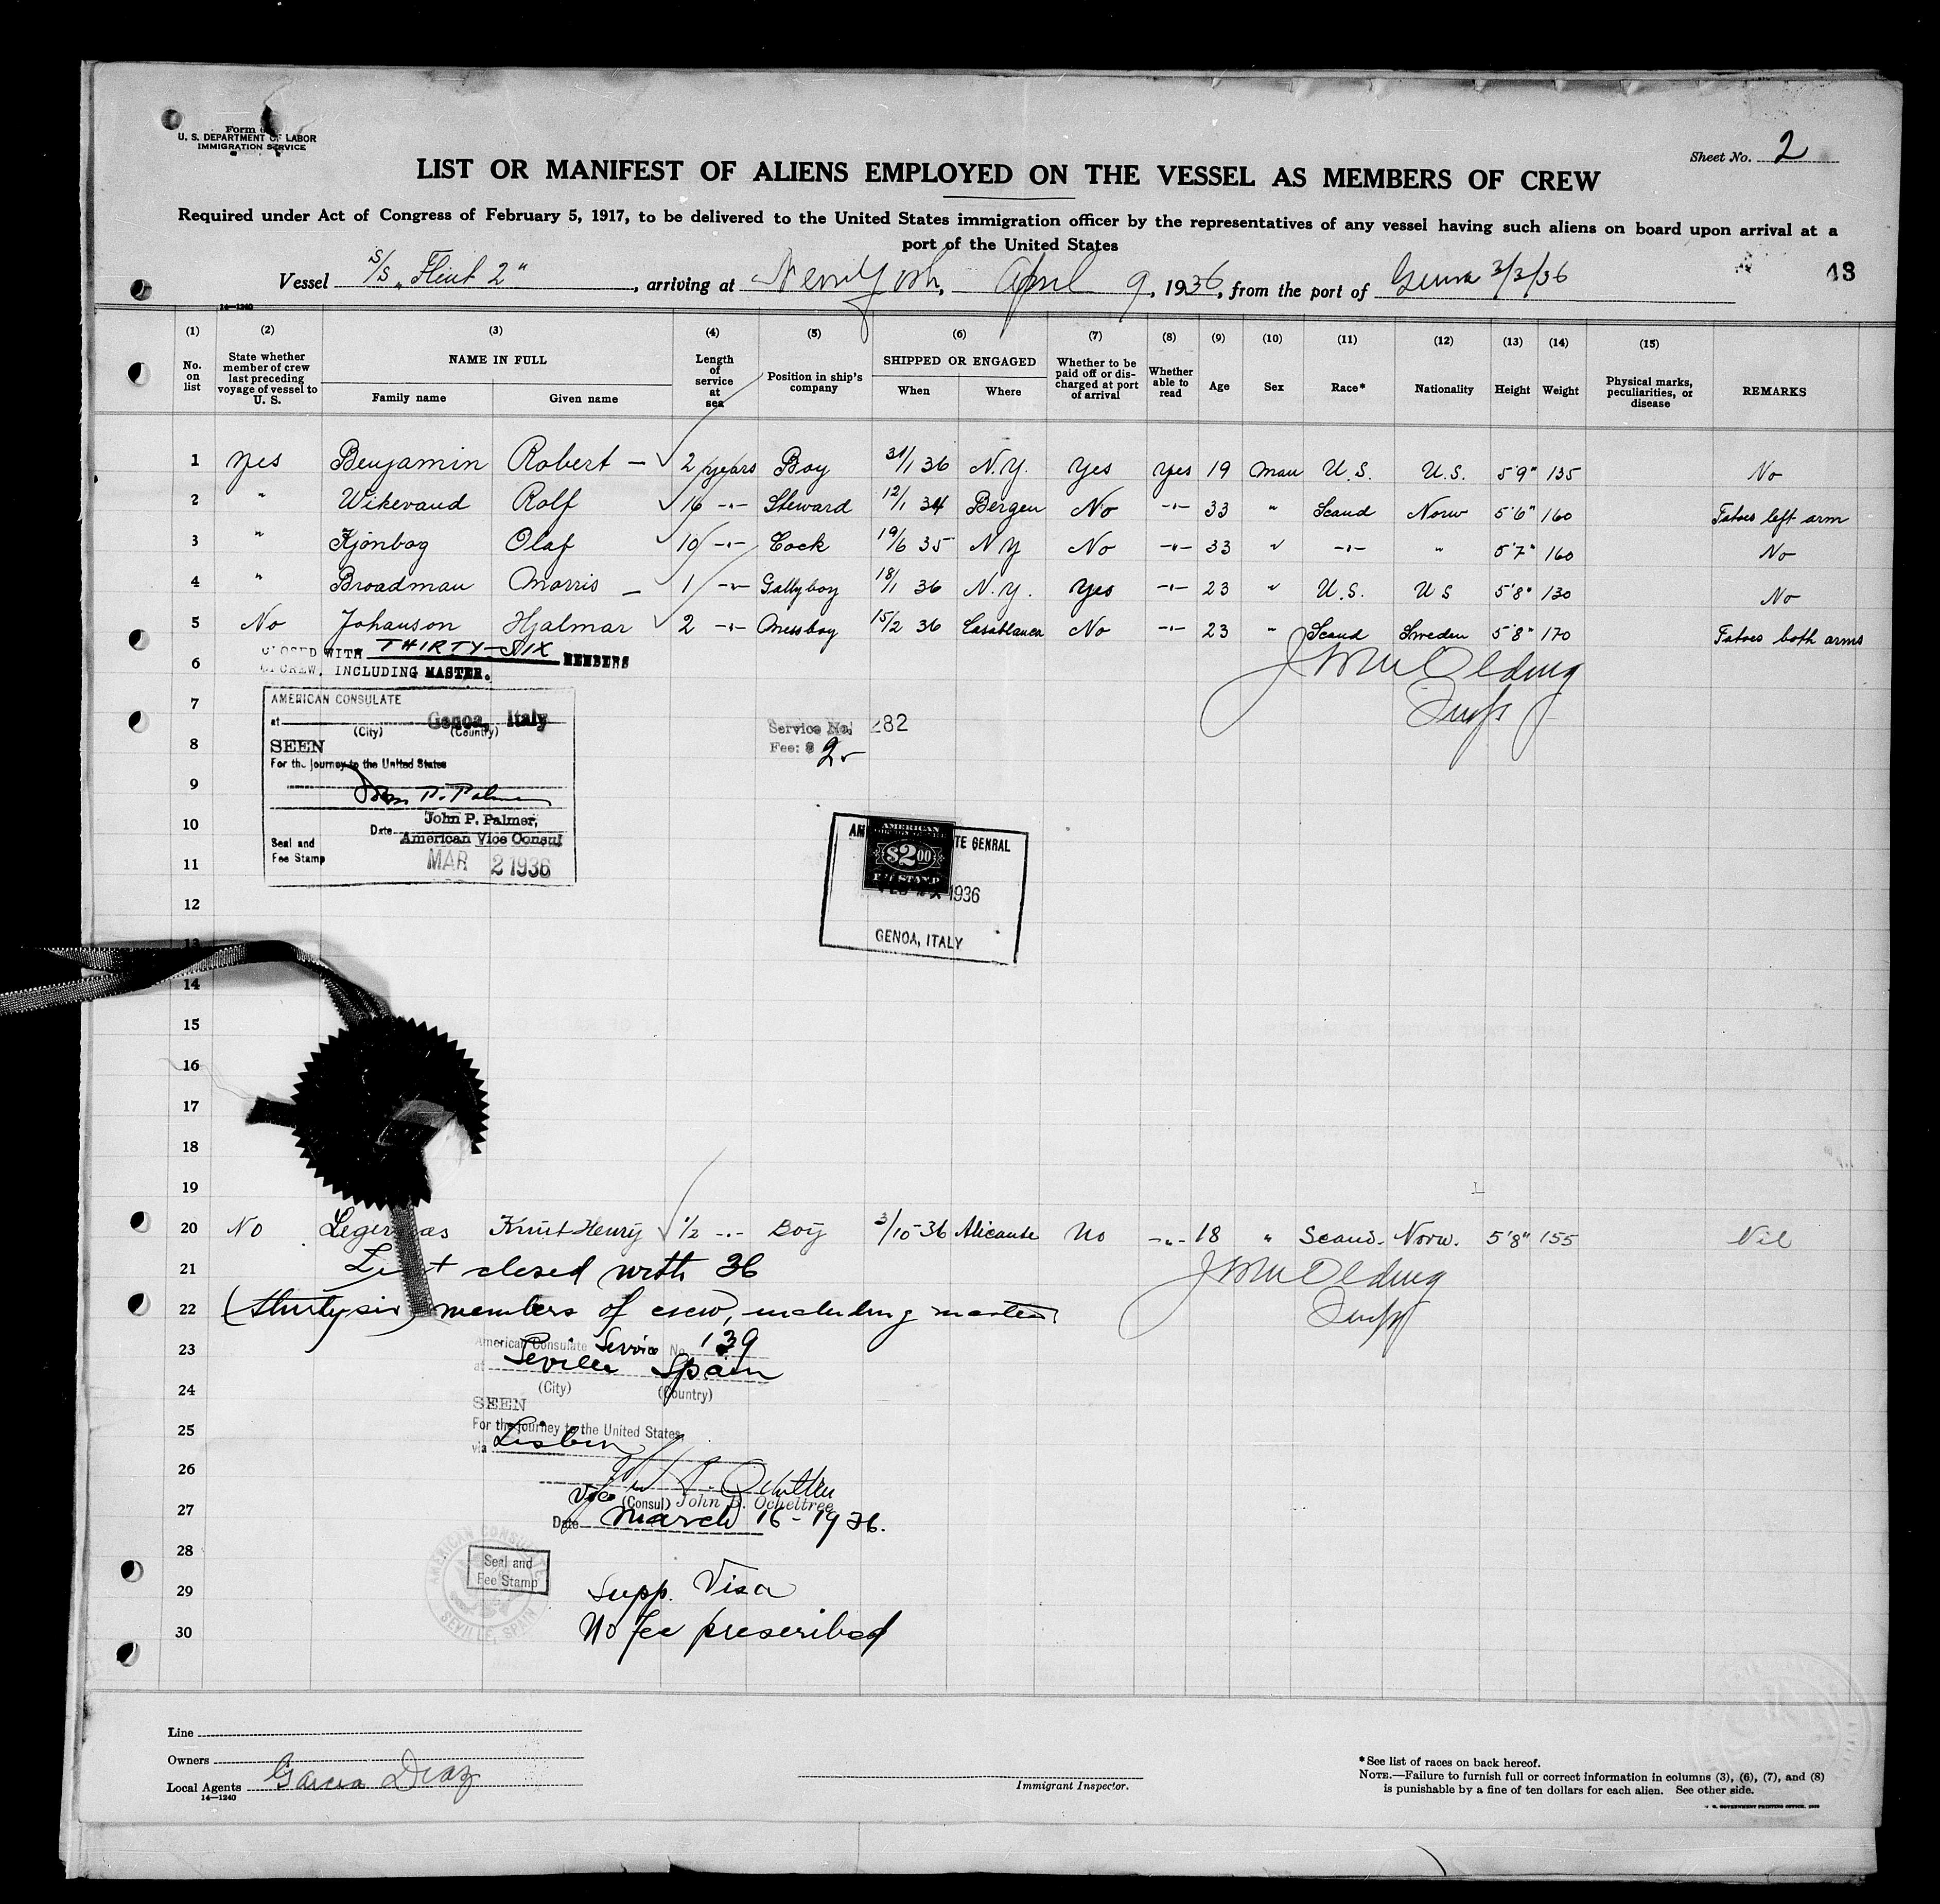 Form
U. S. DEPARTMENT OF LABOR
IMMIGRATION SERVICE
Sheet No. 2
LIST OR MANIFEST OF ALIENS EMPLOYED ON THE VESSEL AS MEMBERS OF CREW
Required under Act of Congress of February 5, 1917, to be delivered to the United States immigration officer by the representatives of any vessel having such aliens on board upon arrival at a
port of the United States
Vessel S/S „Flint 2", arriving at New York, April 9, 1936, from the port of Genua 3/3/36
43
14—1240
(1) (2) (3) (4) (5) (6) (7) (8) (9) (10) (11) (12) (13) (14) (15)
No. on list
State whether member of crew last preceding voyage of vessel to U. S.
NAME IN FULL
Family name Given name
Length of service at sea
Position in ship's company
SHIPPED OR ENGAGED
When Where
Whether to be paid off or discharged at port of arrival
Whether able to read
Age Sex Race* Nationality Height Weight
Physical marks, peculiarities, or disease
REMARKS
1 yes Benjamin Robert — 2 years Boy 31/1 36 N.Y. Yes yes 19 man U.S. U.S. 5'9" 135 No
2 " Wikevand Rolf 16 -"- Steward 12/1 34 Bergen No -"- 33 " Scand Norw 5'6" 160 Tatoes left arm
3 " Kjønbog Olaf 10 -"- Cock 19/6 35 N Y No -"- 33 " -"- " 5'7" 160 No
4 " Broadman Morris — 1 -"- Gallyboy 18/1 36 N.Y. Yes -"- 23 " U.S. U S 5'8" 130 No
5 No Johanson Hjalmar 2 -"- Messboy 15/2 36 Casablanca No -"- 23 " Scand Sweden 5'8" 170 Tatoes both arms
CLOSED WITH THIRTY-SIX MEMBERS
OF CREW, INCLUDING MASTER.
6
7
8
9
10
11
12
13
14
15
16
17
18
19
AMERICAN CONSULATE
at Genoa, Italy
(City) (Country)
SEEN
For the journey to the United States
John P. Palmer
John P. Palmer,
American Vice Consul
Date MAR 2 1936
Seal and
Fee Stamp
Service No. 282
Fee: $ 2-
AMERICAN
$2.00
FEE STAMP
TE GENRAL
1936
GENOA, ITALY
20 No Knut Henry 1/2 -"- Boy 3/10-36 Alicante No -"- 18 " Scand. Norw. 5'8" 155 Nil
21 List closed with 36
22 (thirty six) members of crew, including master
23
24
25
26
27
28
29
30
American Consulate Service No. 139
at Seville Spain
(City) (Country)
SEEN
For the journey to the United States
via Lisbon
Vice (Consul) John D. Ocheltree
Date March 16-1936.
Seal and
Fee Stamp
AMERICAN CONSULATE
SEVILLE, SPAIN
Supp. Visa
No fee prescribed
Line
Owners
Local Agents Garcia Diaz
14—1240
Immigrant Inspector.
*See list of races on back hereof.
NOTE.—Failure to furnish full or correct information in columns (3), (6), (7), and (8)
is punishable by a fine of ten dollars for each alien. See other side.